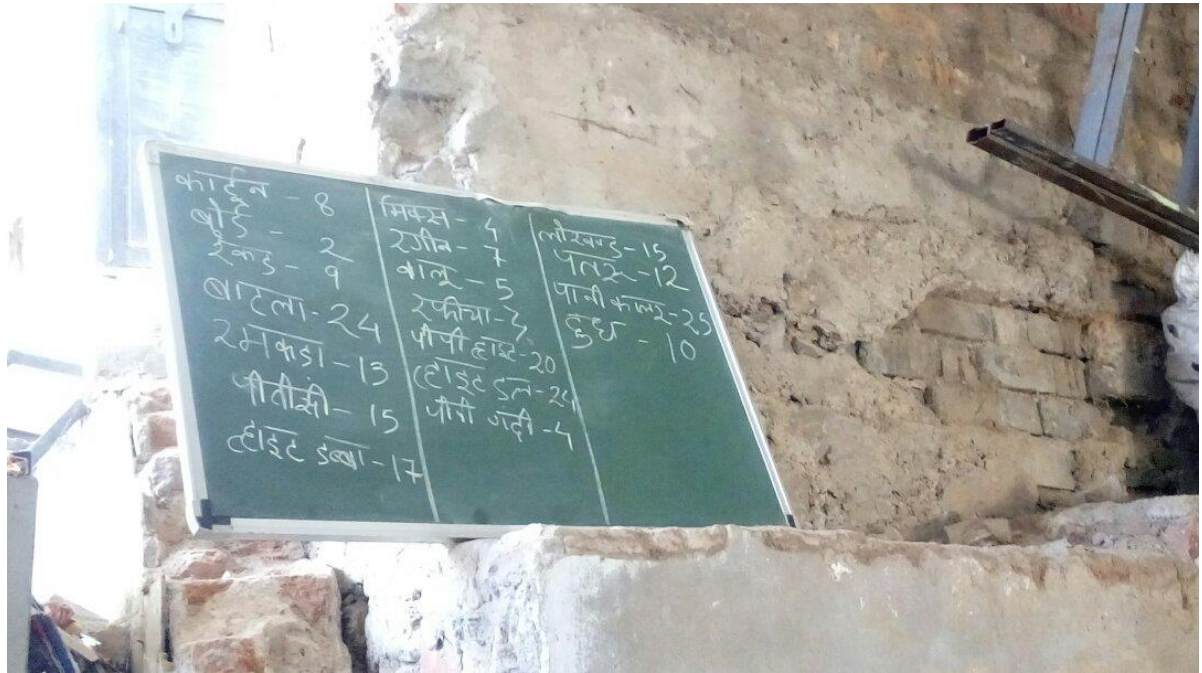 कार्टून - 8
बोर्ड - 2
रेकड - 9
बाटला - 24
रमकडा - 13
पीवीसी - 15
व्हाइट डब्बा - 17
मिक्स - 4
रगीन - 7
बालू - 5
पीपी व्हाइट - 20
व्हाइट डल - 24
पीपी गादी - 4
लोखण्ड - 15
पतर - 12
पानी कालर - 25
दुध - 10